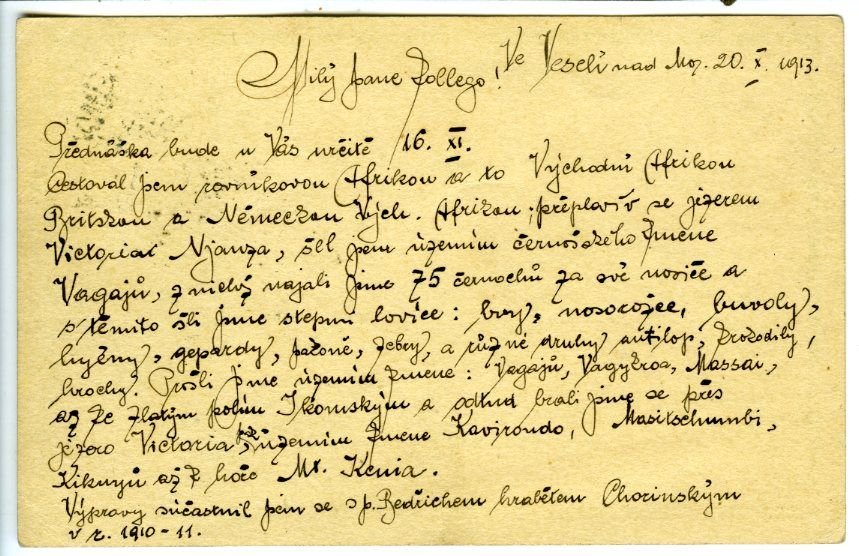 Milý pane kollego! Ve Veselí nad Mor. 20. X. 1913.
Přednáška bude u Vás určitě 16. XI.
Cestoval jsem rovníkovou Afrikou a to Východní Afrikou
Britskou a Německou Vých. Afrikou, přeplaviv se jezerem
Victoria Njanza, šel jsem územím černošského kmene
Vagajů, z nichž najali jsme 75 černochů za své nosiče a
s těmito šli jsme stepmi lovíce: lvy, nosorožce, buvoly,
hyény, gepardy, pakoně, zebry, a různé druhy antilop, krokodily,
hrochy. Prošli jsme územím kmene: Vagajů, Massai,
až ke zlatým polím Ikomským a odtud brali jsme se přes
jezero Victoria, územím kmene Kavirondo,
Kikuyů až k hoře Mt. Kenia.
Výpravy súčastnil jsem se s p. Bedřichem hrabětem Chorinským
v r. 1910-11.